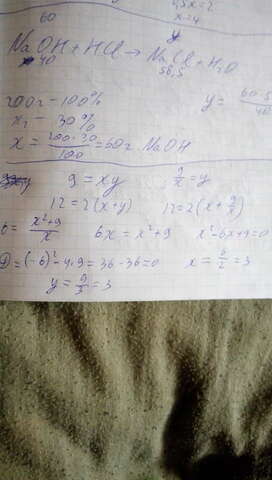 60
1,5x=2
x=4
y
NaOH + HCl → NaCl + H₂O
40
58,5
200г - 100%
x г - 30%
y = 60·5
40
x = 200·30/100 = 60г NaOH
9 = xy
9/x = y
12 = 2(x+y)
12 = 2(x + 9/x)
6 = x²+9/x
6x = x²+9
x²-6x+9=0
D = (-6)²-4·9 = 36-36=0
x = 6/2 = 3
y = 9/3 = 3